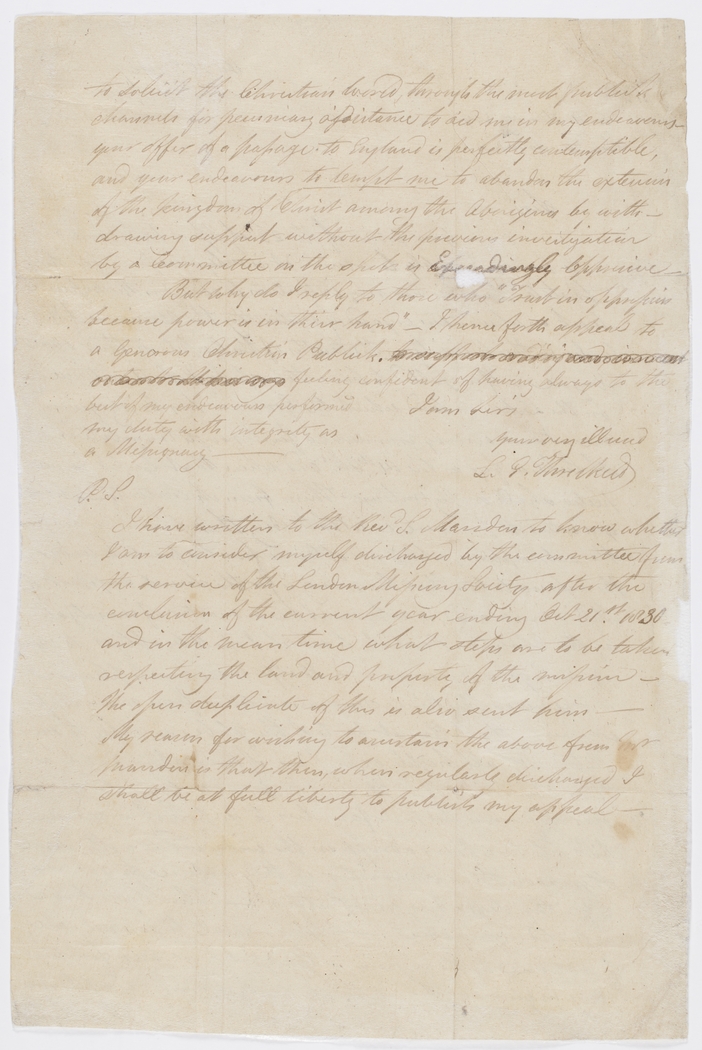 to solicit the Christian World, through the most publick
channels for pecuniary assistance to aid me in my endeavours
your offer of a passage to England is perfectly contemptible,
and your endeavours to tempt me to abandon the extension
of the Kingdom of Christ among the Aborigines by with-
drawing support without the previous investigation
by a Committee on the spot is Exceedingly Oppressive—
But why do I reply to those who "Trust in oppression
because power is in their hand" — I henceforth appeal to
a Generous Christian Publick,
feeling confident of having always to the
best of my endeavours performed
my duty with integrity as
a Missionary——
I am Sirs -
your very illused
L. E. Threlkeld
P.S.
I have written to the Revd S. Marsden to know whether
I am to consider myself discharged by the committee from
the service of the London Missiony Society after the
conclusion of the current year ending Oct 21.st 1830
and in the mean time what steps are to be taken
respecting the land and property of the mission —
the open duplicate of this is also sent him —
My reason for wishing to ascertain the above from Mr
Marsden is that then, when regularly discharged I
shall be at full liberty to publish my appeal —.